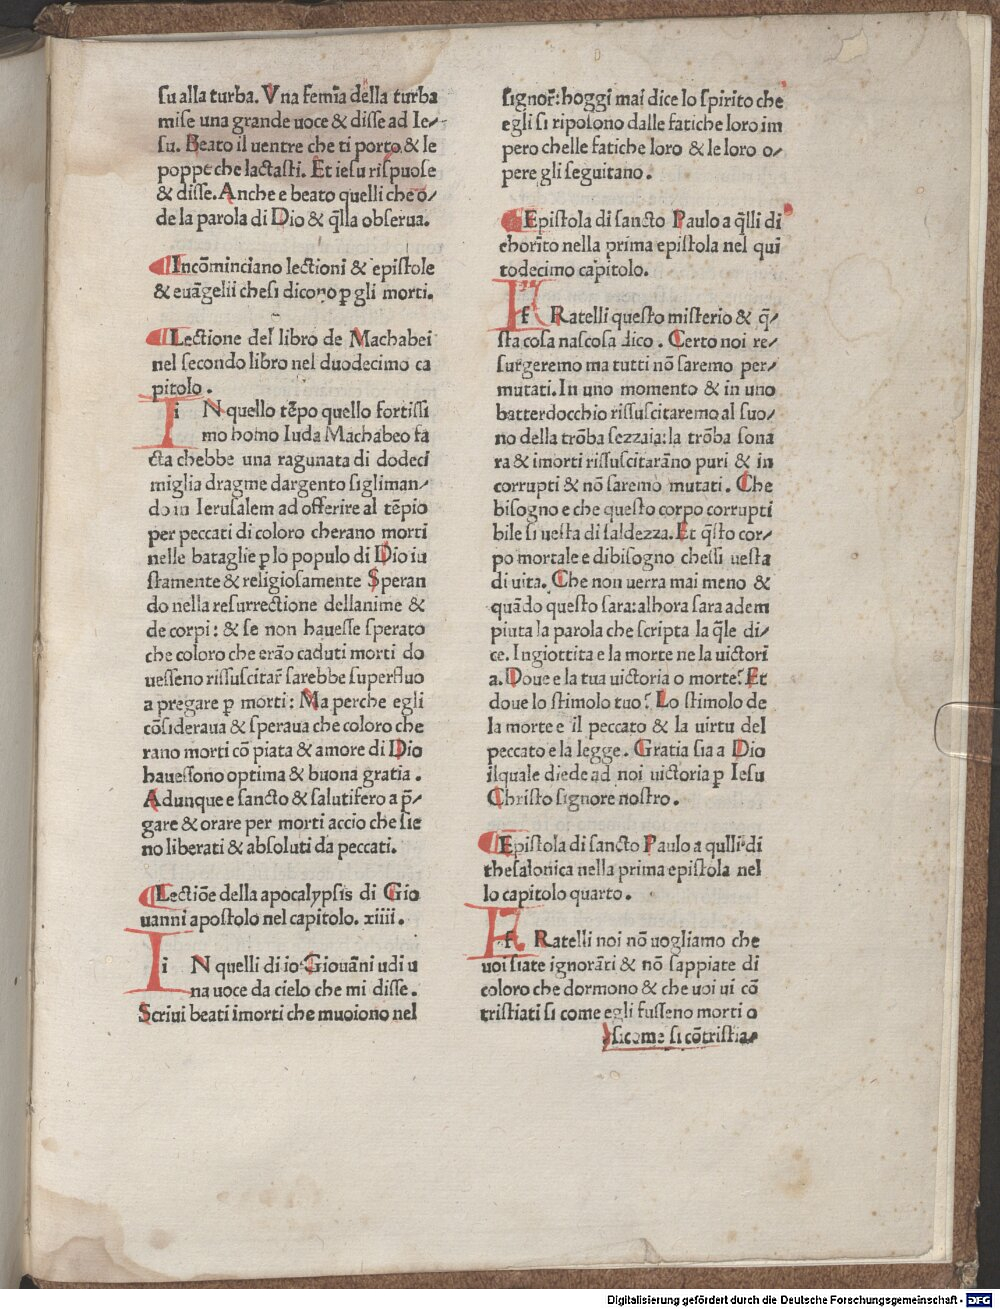 su alla turba. Vna femīa della turba
mise una grande uoce & disse ad Ie/
su. Beato il uentre che ti porto & le
poppe che lactasti. Et iesu rispuose
& disse. Anche e beato quelli che o/
de la parola di Dio & q̄lla obserua.
¶Incōminciano lectioni & epistole
& euāgelii che si dicono p gli morti.
¶Lectione del libro de Machabei
nel secondo libro nel duodecimo ca
pitolo.
i N quello tēpo quello fortissi
mo homo Iuda Machabeo fa
cta chebbe una ragunata di dodeci
miglia dragme dargento si gliman/
do in Ierusalem ad offerire al tēpio
per peccati di coloro cherano morti
nelle bataglie p lo populo di Dio iu
stamente & religiosamente Speran
do nella resurrectione dellanime &
de corpi: & se non hauesse sperato
che coloro che erāo caduti morti do
uesseno rissuscitar̄ sarebbe superfluo
a pregare p morti: Ma perche egli
cōsideraua & speraua che coloro che
rano morti cō piata & amore di Dio
hauessono optima & buona gratia.
Adunque e sancto & salutifero a p̄/
gare & orare per morti accio che sie
no liberati & absoluti da peccati.
¶Lectiōe della apocalypsis di Gio
uanni apostolo nel capitolo. xiiii.
i N quelli di io Giouāni udi u
na uoce da cielo che mi disse.
Scriui beati imorti che muoiono nel
signor̄: hoggi mai dice lo spirito che
egli si riposono dalle fatiche loro im
pero chelle fatiche loro & le loro o/
pere gli seguitano.
¶Epistola di sancto Paulo a q̄lli di
chorīto nella prima epistola nel qui
todecimo capitolo.
f Ratelli questo misterio & q̄/
sta cosa nascosa dico. Certo noi re/
surgeremo ma tutti nō saremo per/
mutati. In uno momento & in uno
batterdocchio rissuscitaremo al suo/
no della trōba sezzaia: la trōba sona
ra & imorti rissuscitarāno puri & in
corrupti & nō saremo mutati. Che
bisogno e che questo corpo corrupti
bile si uesta di saldezza. Et q̄sto cor/
po mortale e di bisogno chessi uesta
di uita. Che non uerra mai meno &
quādo questo sara: alhora sara adem
piuta la parola che scripta la q̄le di/
ce. Ingiottita e la morte ne la uictori
a. Doue e la tua uictoria o morte? Et
doue lo stimolo tuo? Lo stimolo de
la morte e il peccato & la uirtu del
peccato e la legge. Gratia sia a Dio
ilquale diede ad noi uictoria p Iesu
Christo signore nostro.
¶Epistola di sancto Paulo a qulli di
thesalonica nella prima epistola nel
lo capitolo quarto.
f Ratelli noi nō uogliamo che
uoi siate ignorāti & nō sappiate di
coloro che dormono & che uoi ui cō
tristiati si come egli fusseno morti o
sicome si cōtristia/
Digitalisierung gefördert durch die Deutsche Forschungsgemeinschaft - DFG